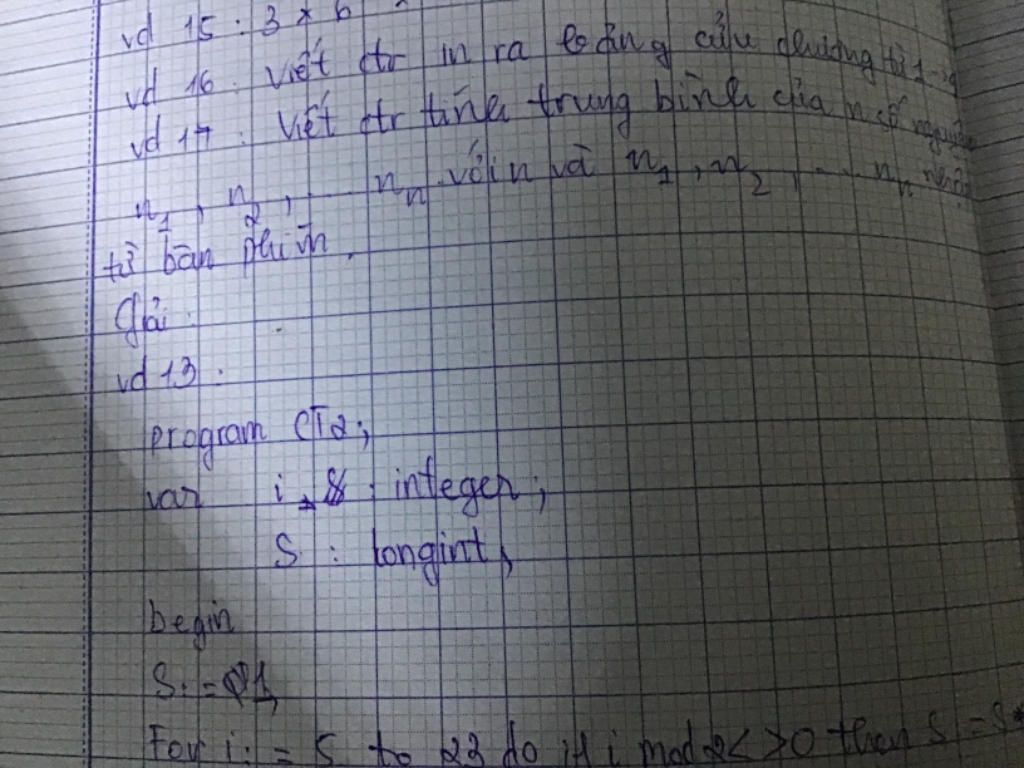 vd 15 : 3 * 6
vd 16 : Viết ctr in ra bảng cửu chương từ 1-9
vd 17 : Viết ctr tính trung bình của n số nguyên
n1, n2, ... nn với n và n1, n2, ... nn nhập
từ bàn phím.
Giải :
vd 13 :
program CT2;
var i : integer;
S : longint;
begin
S:=1;
For i:=5 to 23 do if i mod 2<>0 then S:=S*